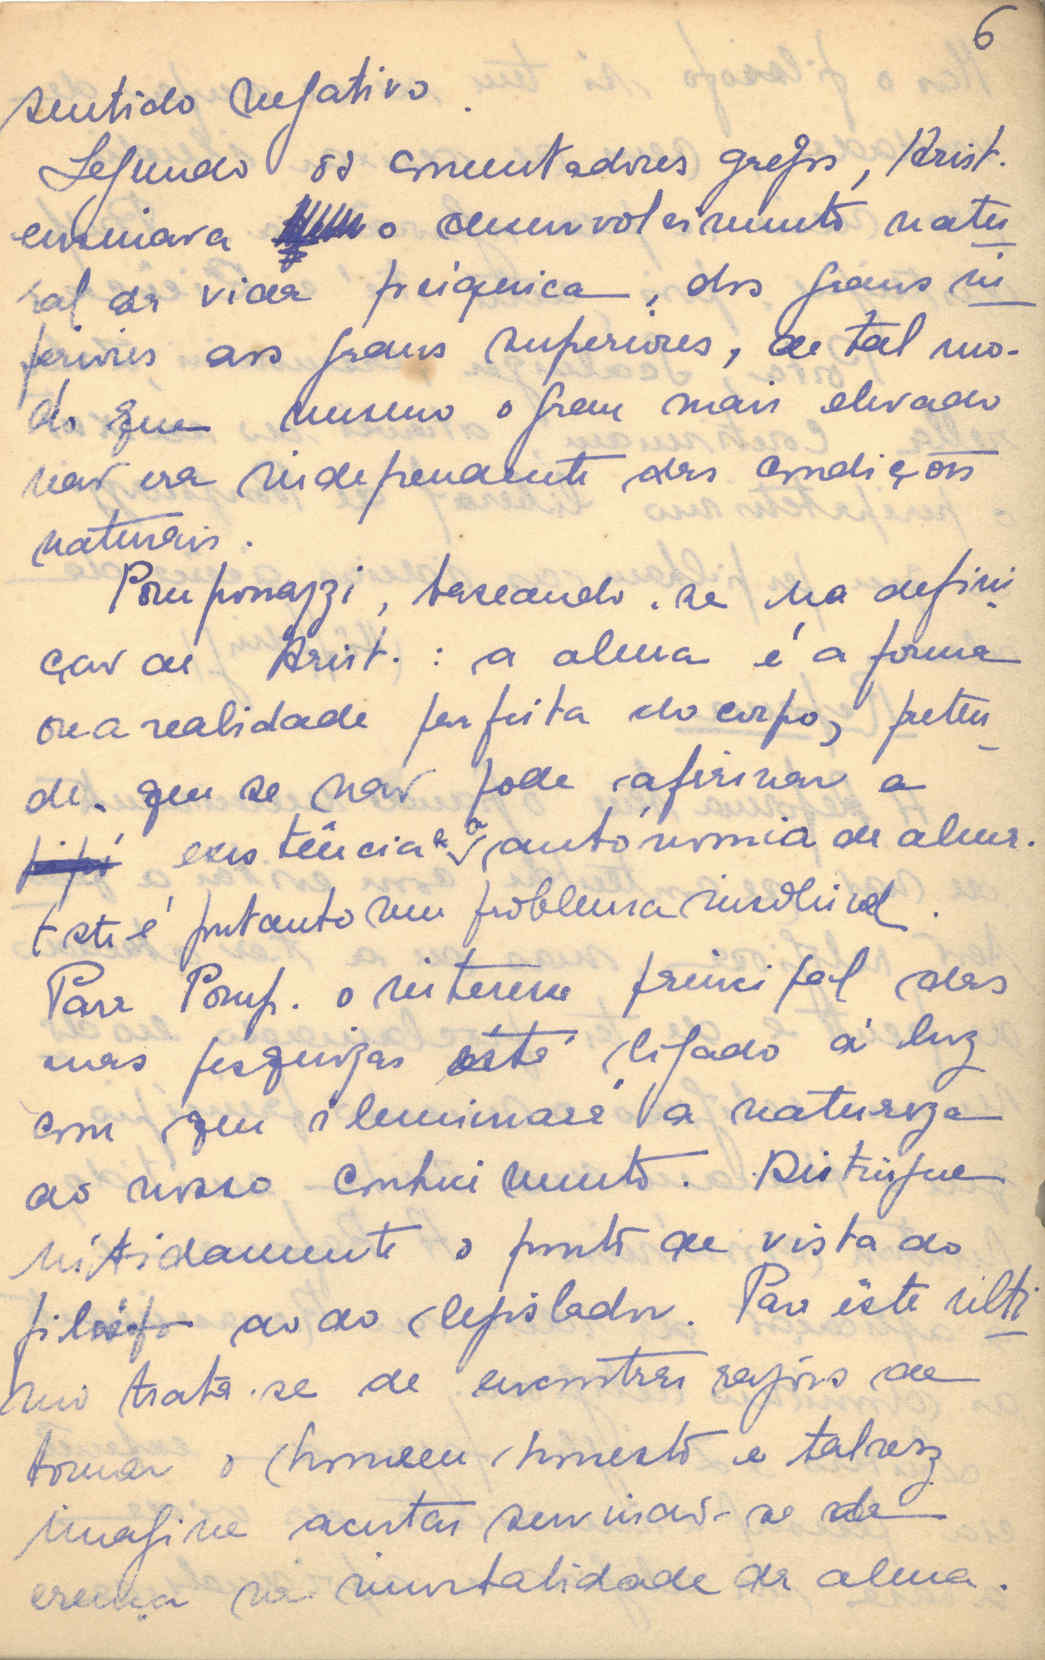 6
sentido negativo.
Segundo os comentadores gregos, Arist.
ensinava o desenvolvimento natu
ral da vida psíquica, dos graus in
feriores aos graus superiores, de tal mo-
do que mesmo o grau mais elevado
não era independente das condições
naturais.
Pomponazzi, baseando-se na defini
ção de Arist.: a alma é a forma
ou a realidade perfeita do corpo, preten
de que se não pode afirmar a
existência e a autónomia da alma.
Este é portanto um problema insolúvel.
Para Pomp. o interesse principal das
suas pesquizas está ligado à luz
com que iluminará a natureza
do nosso conhecimento. Distingue
nitidamente o ponto de vista do
filósofo do do legislador. Para êste últi
mo trata-se de encontrar razões de
tornar o homem honesto e talvez
imagine acertar servindo-se da
crença na imortalidade da alma.